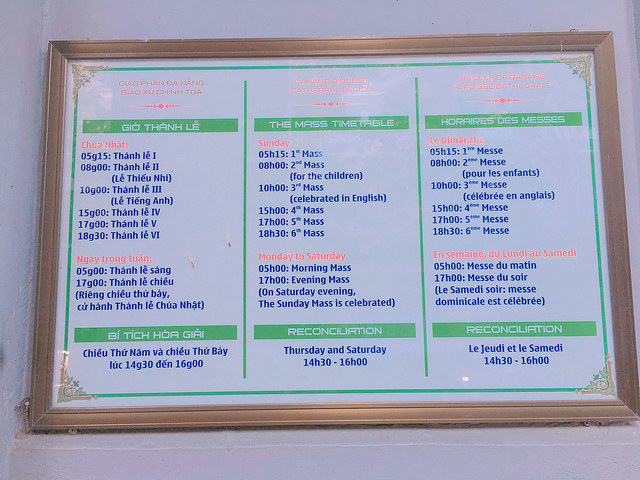 GIÁO PHẬN ĐÀ NẴNG
GIÁO XỨ CHÍNH TÒA
GIỜ THÁNH LỄ
Chúa Nhật:
05g15: Thánh lễ I
08g00: Thánh lễ II
(Lễ Thiếu Nhi)
10g00: Thánh lễ III
(Lễ Tiếng Anh)
15g00: Thánh lễ IV
17g00: Thánh lễ V
18g30: Thánh lễ VI
Ngày trong tuần:
05g00: Thánh lễ sáng
17g00: Thánh lễ chiều
(Riêng chiều thứ bảy,
cử hành Thánh lễ Chúa Nhật)
BÍ TÍCH HÒA GIẢI
Chiều Thứ Năm và chiều Thứ Bảy
lúc 14g30 đến 16g00
THE MASS TIMETABLE
Sunday
05h15: 1st Mass
08h00: 2nd Mass
(for the children)
10h00: 3rd Mass
(celebrated in English)
15h00: 4th Mass
17h00: 5th Mass
18h30: 6th Mass
Monday to Saturday
05h00: Morning Mass
17h00: Evening Mass
(On Saturday evening,
The Sunday Mass is celebrated)
RECONCILIATION
Thursday and Saturday
14h30 - 16h00
HORAIRES DES MESSES
Le Dimanche
05h15: 1ère Messe
08h00: 2ème Messe
(pour les enfants)
10h00: 3ème Messe
(célébrée en anglais)
15h00: 4ème Messe
17h00: 5ème Messe
18h30: 6ème Messe
En semaine, du Lundi au Samedi
05h00: Messe du matin
17h00: Messe du soir
(Le Samedi soir: messe
dominicale est célébrée)
RECONCILIATION
Le Jeudi et le Samedi
14h30 - 16h00